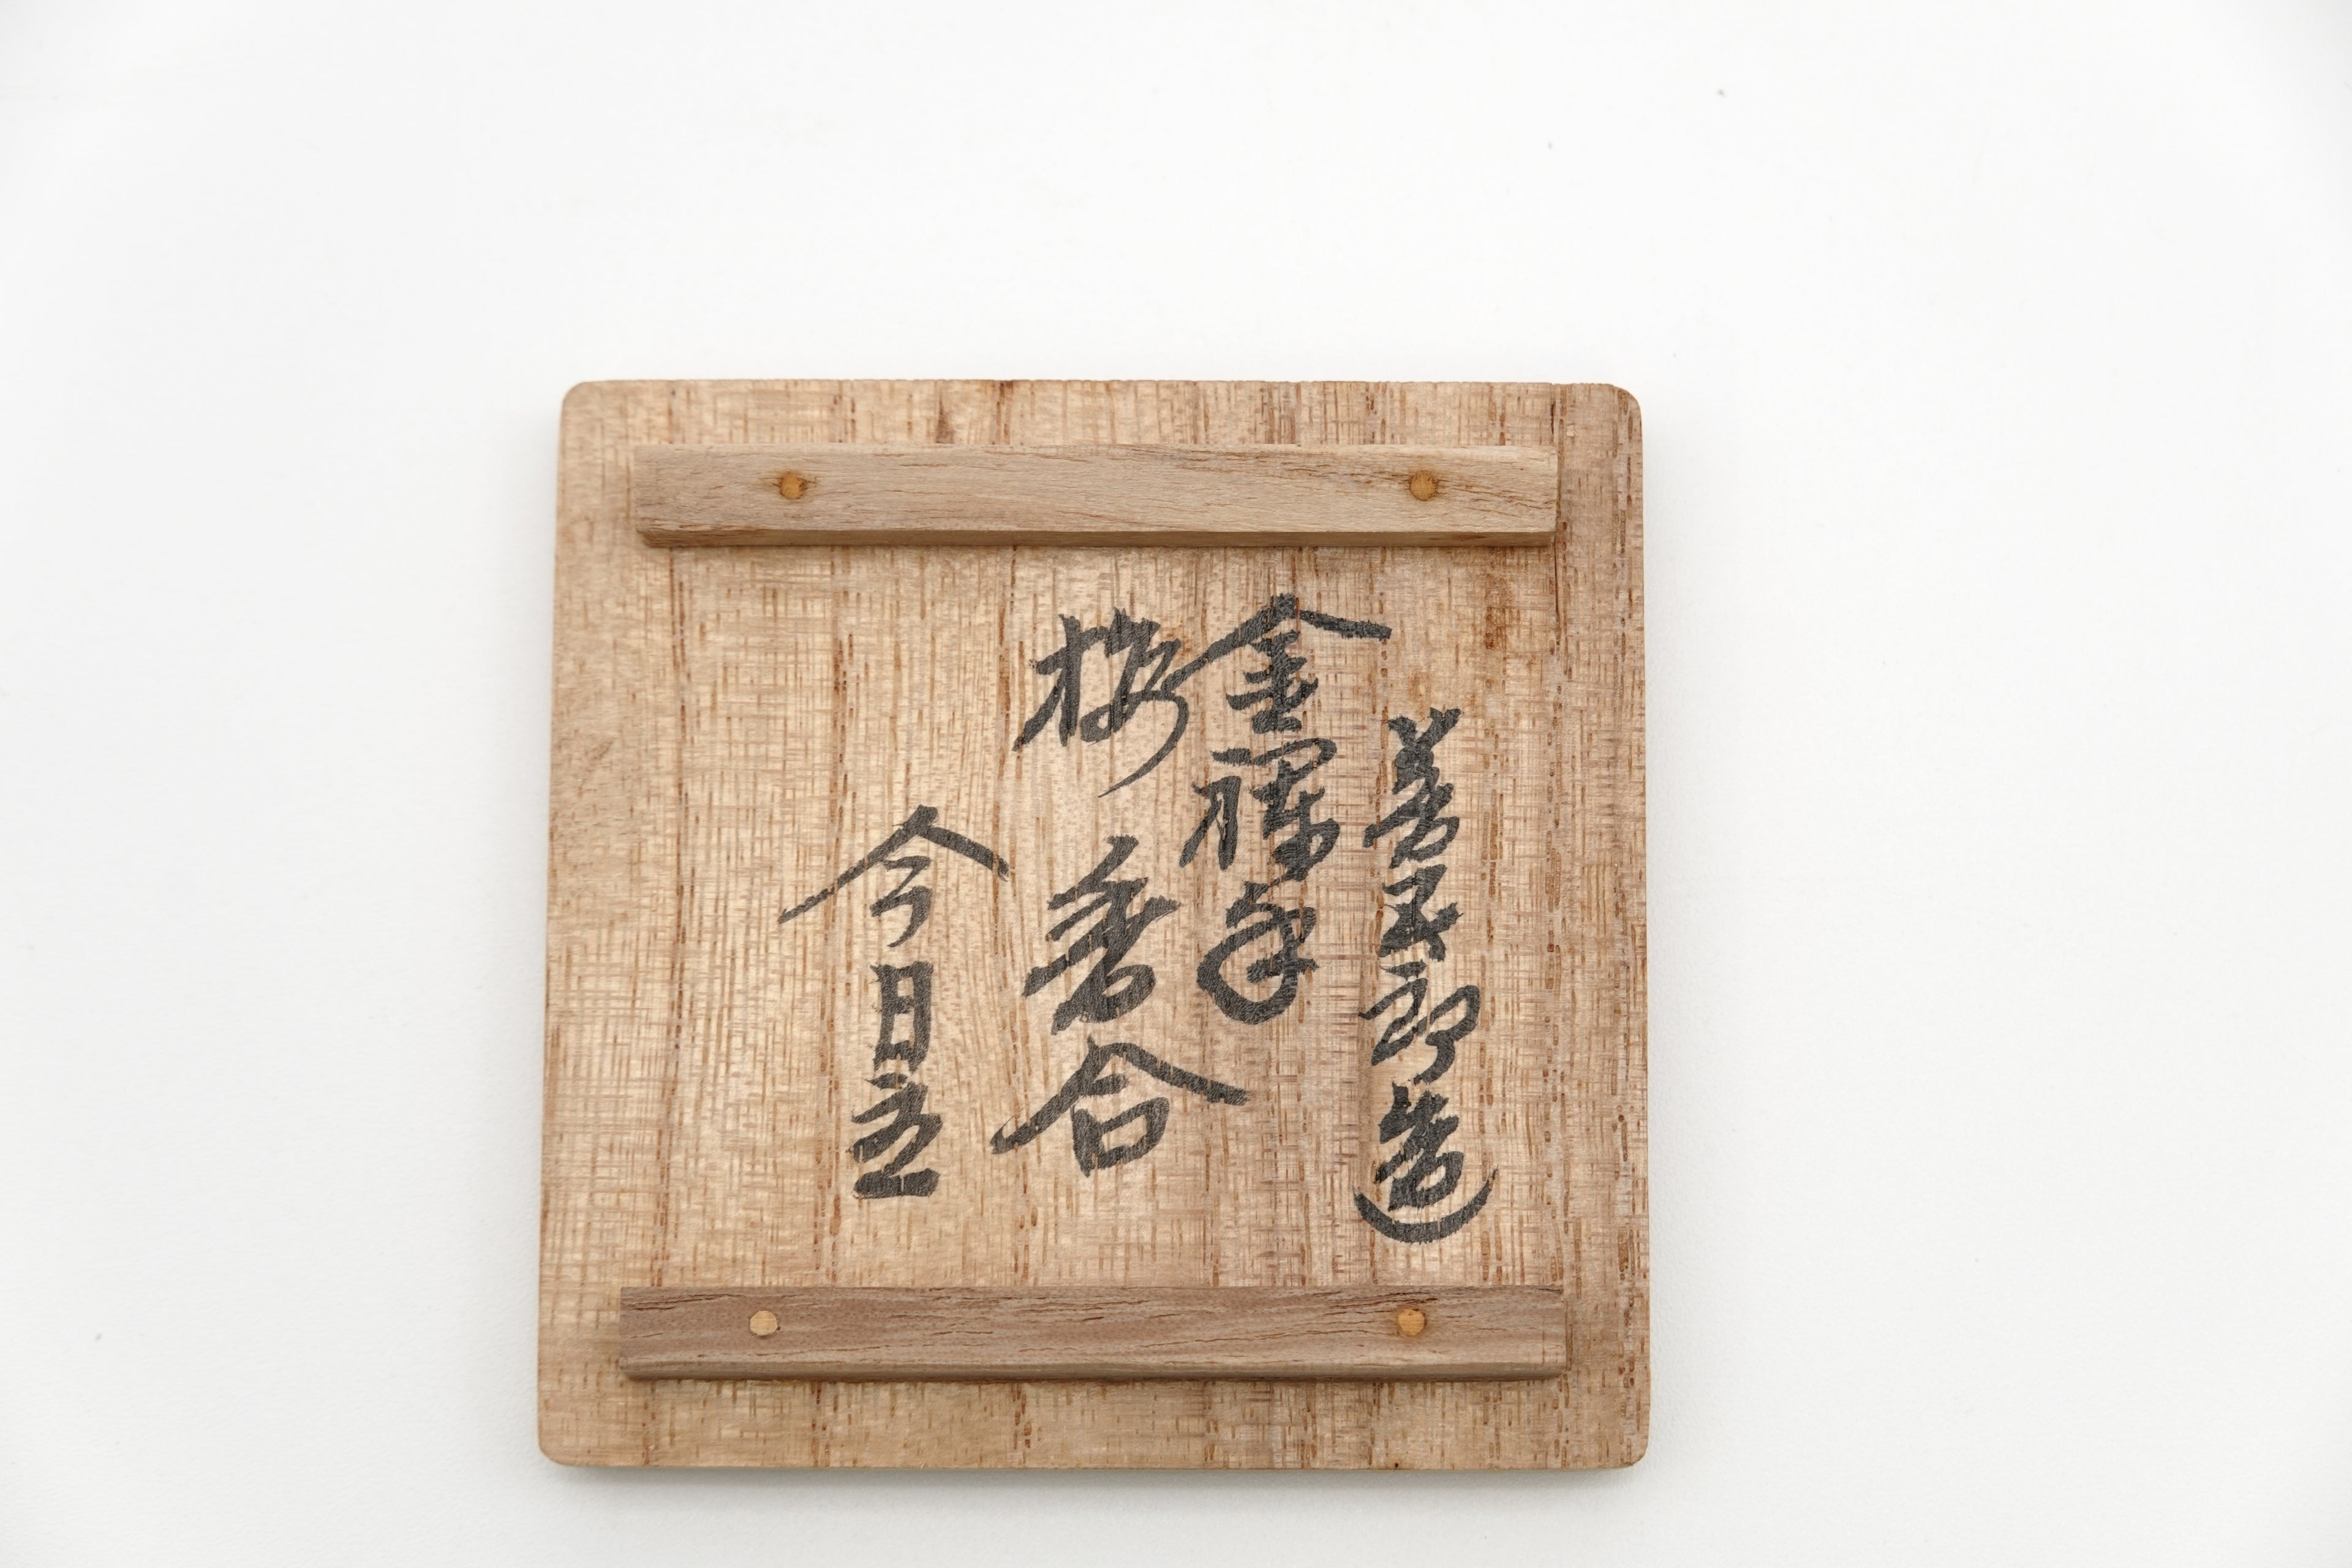 善五郎造
金襴手
桜 香合
今日